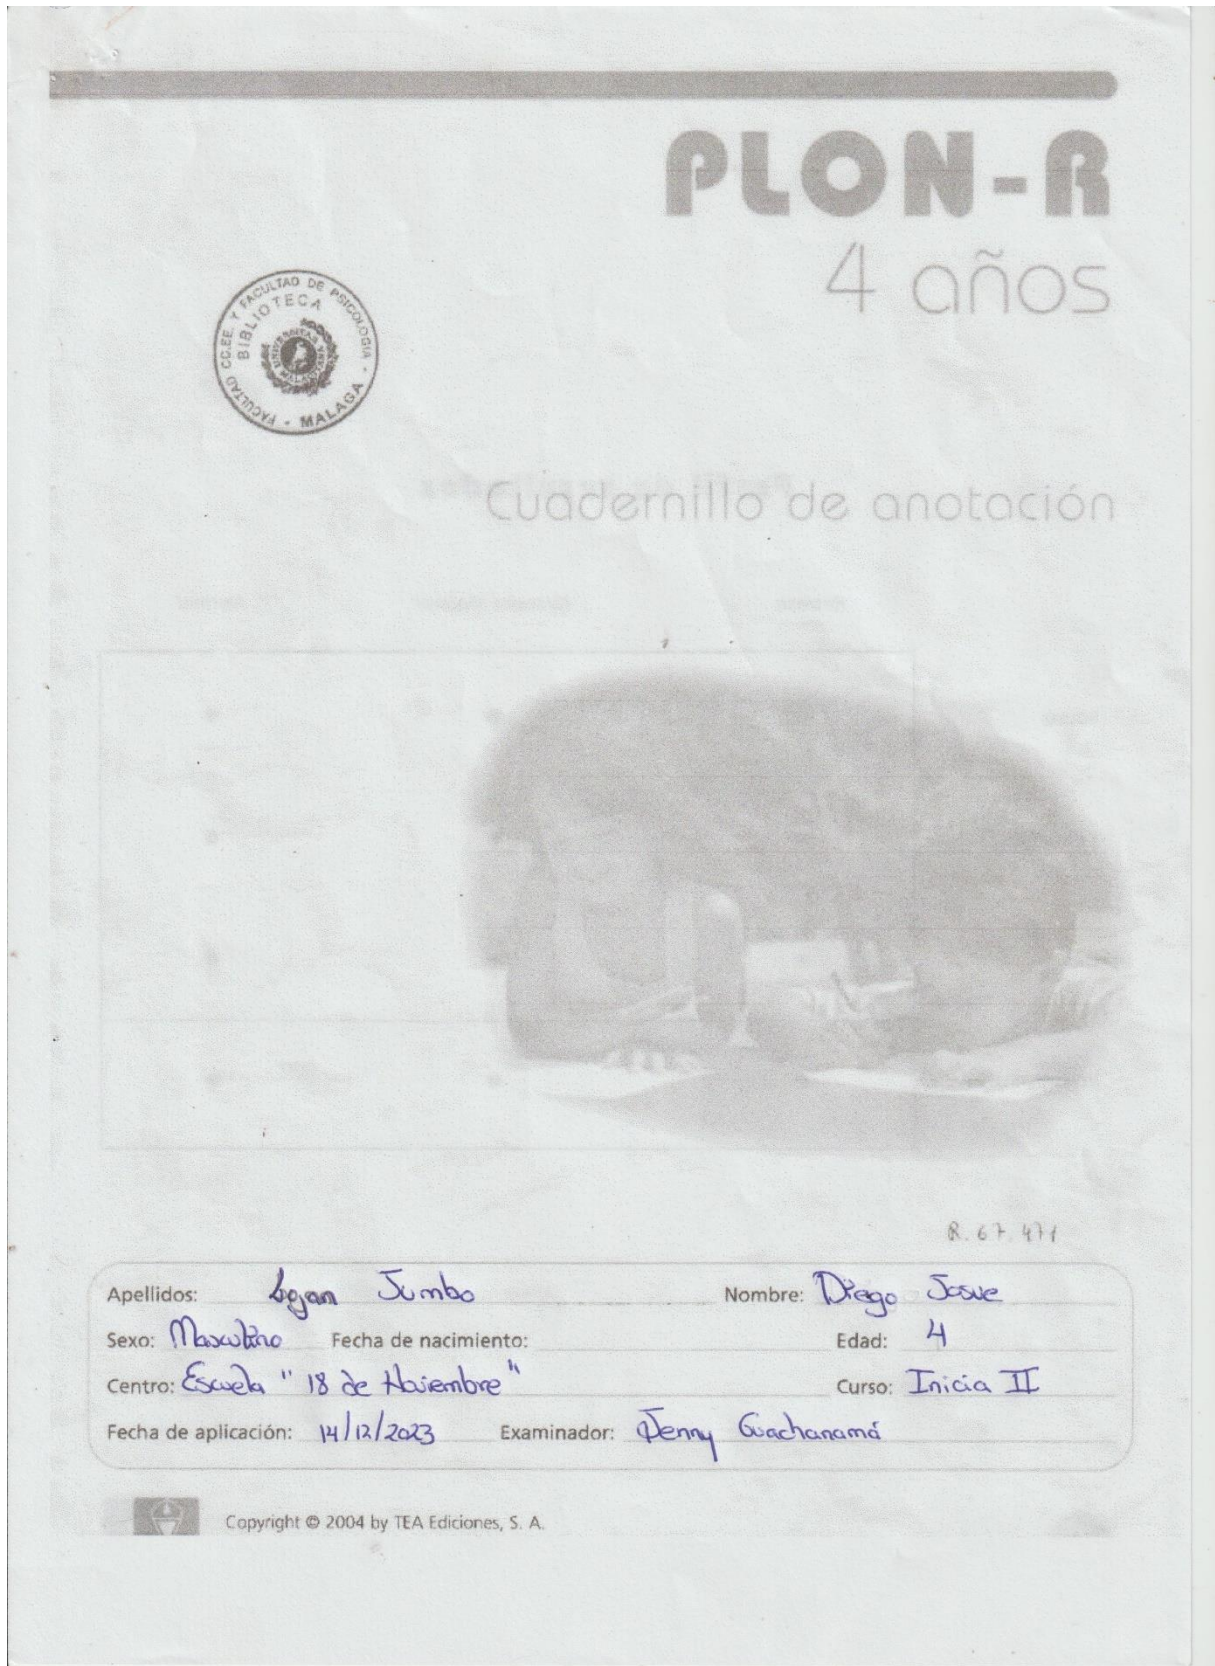 PLON-R
4 años
FACULTAD CC.EE. Y FACULTAD DE PSICOLOGIA - MALAGA -
BIBLIOTECA
Cuadernillo de anotación
R. 67. 471
Apellidos: Lojan Jumbo Nombre: Diego Josue
Sexo: Masculino Fecha de nacimiento: Edad: 4
Centro: Escuela " 18 de Noviembre " Curso: Inicia II
Fecha de aplicación: 14/12/2023 Examinador: Jenny Guachanamá
Copyright © 2004 by TEA Ediciones, S. A.